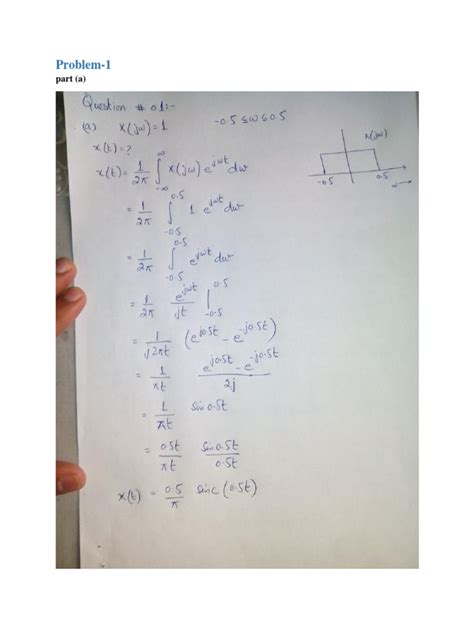 Problem-1
part (a)
Question # 01:-
(a) X(jω)=1 -0.5 ≤ω≤0.5
x(t)=?
X(jω)
-0.5 0.5 ω→
x(t)= 1/2π ∫_{-∞}^{∞} X(jω) e^{jωt} dω
= 1/2π ∫_{-0.5}^{0.5} 1 e^{jωt} dω
= 1/2π ∫_{-0.5}^{0.5} e^{jωt} dω
= 1/2π e^{jωt}/jt |_{-0.5}^{0.5}
= 1/j2πt (e^{j0.5t} - e^{-j0.5t})
= 1/πt e^{j0.5t} - e^{-j0.5t}/2j
= 1/πt Sin 0.5t
= 0.5t/πt Sin 0.5t/0.5t
x(t) = 0.5/π sinc (0.5t)